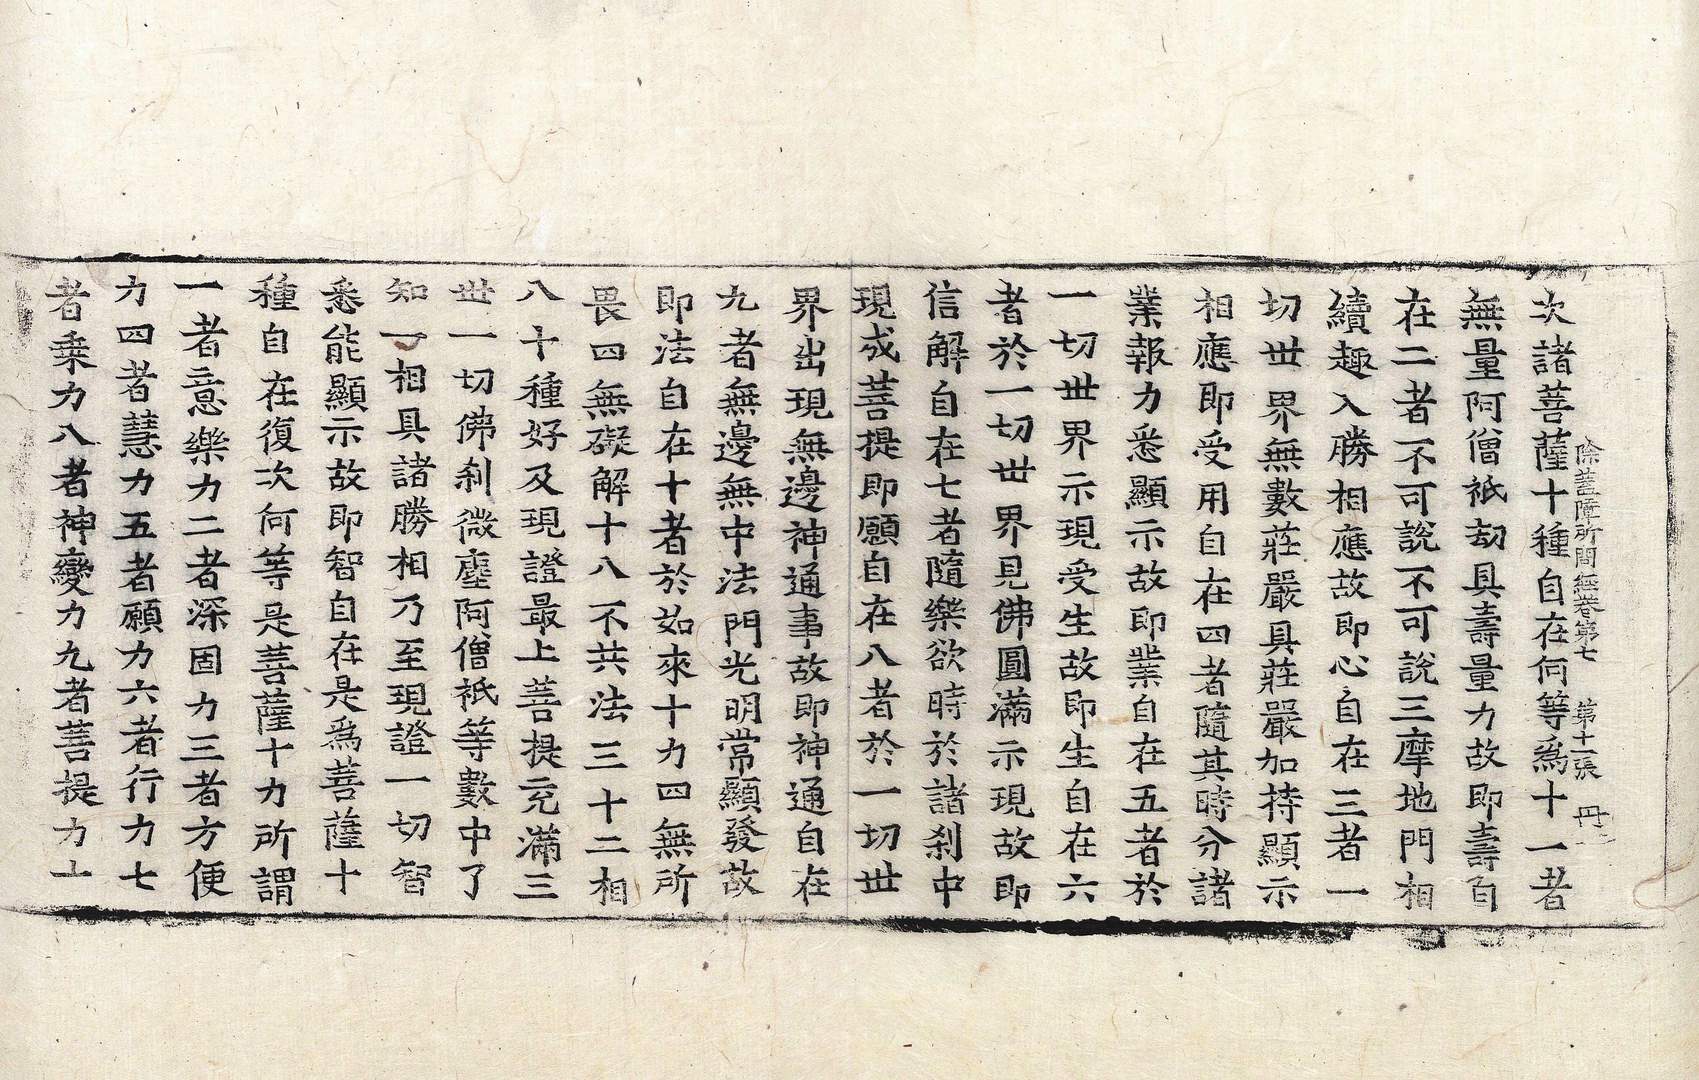 除蓋障所問經卷第七 第十一張 丹
次諸菩薩十種自在何等爲十一者
無量阿僧祇劫具壽量力故即壽自
在二者不可說不可說三摩地門相
續趣入勝相應故即心自在三者一
切世界無數莊嚴具莊嚴加持顯示
相應即受用自在四者隨其時分諸
業報力悉顯示故即業自在五者於
一切世界示現受生故即生自在六
者於一切世界見佛圓滿示現故即
信解自在七者隨樂欲時於諸剎中
現成菩提即願自在八者於一切世
界出現無邊神通事故即神通自在
九者無邊無中法門光明常顯發故
即法自在十者於如來十力四無所
畏四無礙解十八不共法三十二相
八十種好及現證最上菩提充滿三
世一切佛剎微塵阿僧祇等數中了
知一相具諸勝相乃至現證一切智
悉能顯示故即智自在是爲菩薩十
種自在復次何等是菩薩十力所謂
一者意樂力二者深固力三者方便
力四者慧力五者願力六者行力七
者乘力八者神變力九者菩提力十